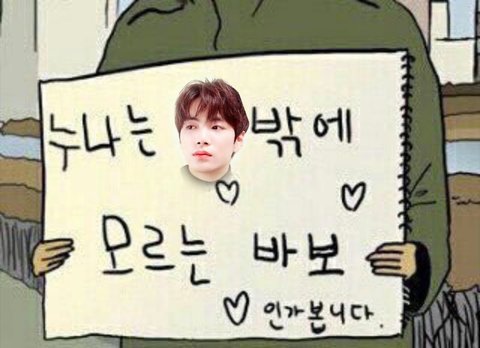 누나는 밖에
모르는 바보
인가봅니다.